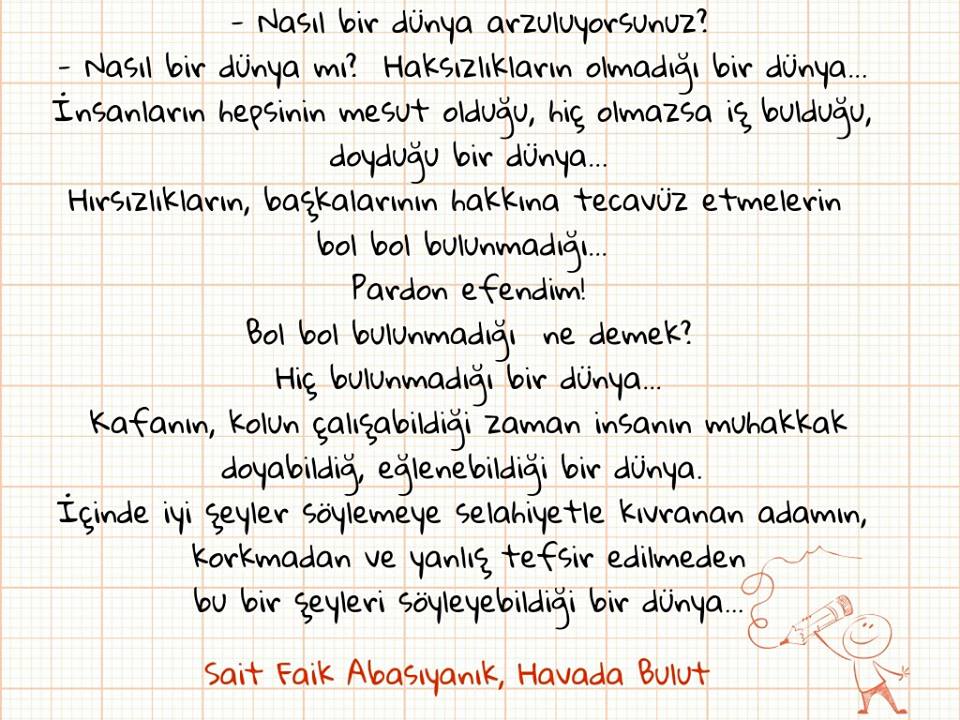 - Nasıl bir dünya arzuluyorsunuz?
- Nasıl bir dünya mı? Haksızlıkların olmadığı bir dünya...
İnsanların hepsinin mesut olduğu, hiç olmazsa iş bulduğu,
doyduğu bir dünya...
Hırsızlıkların, başkalarının hakkına tecavüz etmelerin
bol bol bulunmadığı...
Pardon efendim!
Bol bol bulunmadığı ne demek?
Hiç bulunmadığı bir dünya...
Kafanın, kolun çalışabildiği zaman insanın muhakkak
doyabildiğ, eğlenebildiği bir dünya.
İçinde iyi şeyler söylemeye selahiyetle kıvranan adamın,
korkmadan ve yanlış tefsir edilmeden
bu bir şeyleri söyleyebildiği bir dünya...
Sait Faik Abasıyanık, Havada Bulut